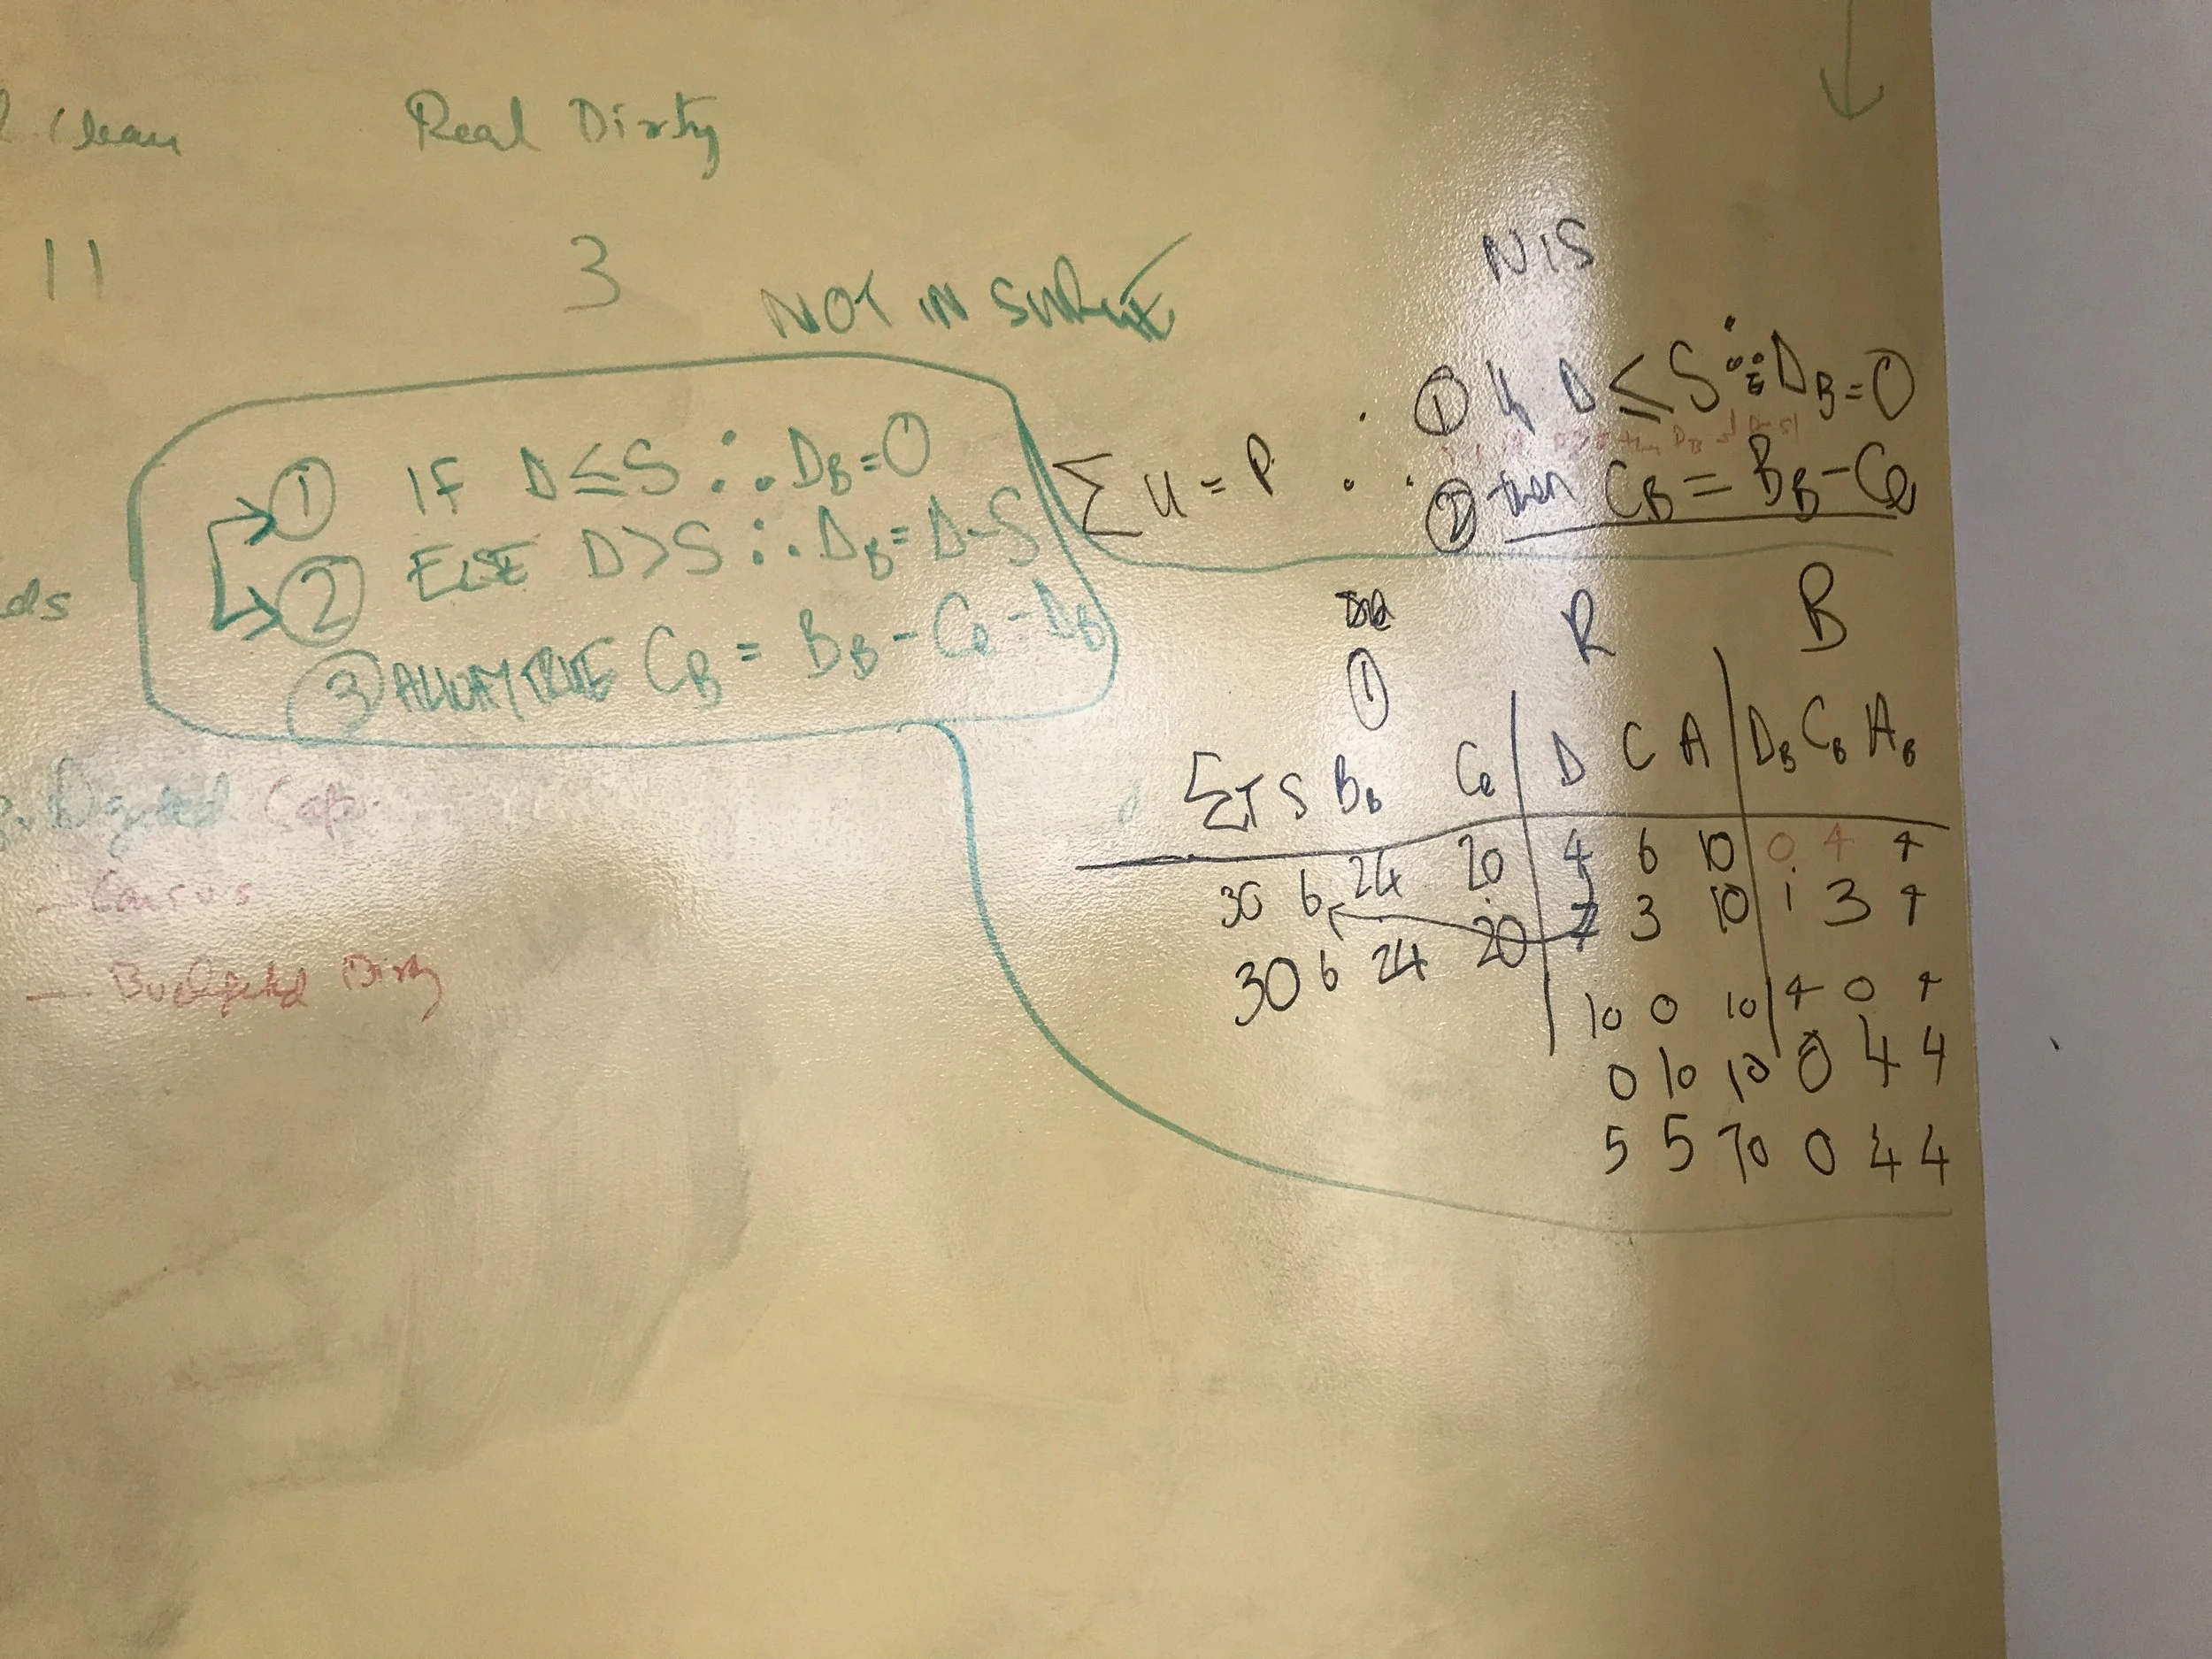 Clean Real Dirty
11 3
NOT IN SURGE
① IF D ≤ S ∴ D_B = 0
② ELSE D > S ∴ D_B = D - S
③ ALWAY TRUE C_B = B_B - C_e - D_B
ds
NIS
ΣU = P ∴
① If D ≤ S ∴ D_B = 0
② then C_B = B_B - C_e
①
R B
ΣT S B_B C_e D C A D_B C_B A_B
30 6 24 20 4 6 10 0 4 4
30 6 24 20 7 3 10 1 3 4
10 0 10 4 0 4
0 10 10 0 4 4
5 5 10 0 4 4
- Budgeted Dirty